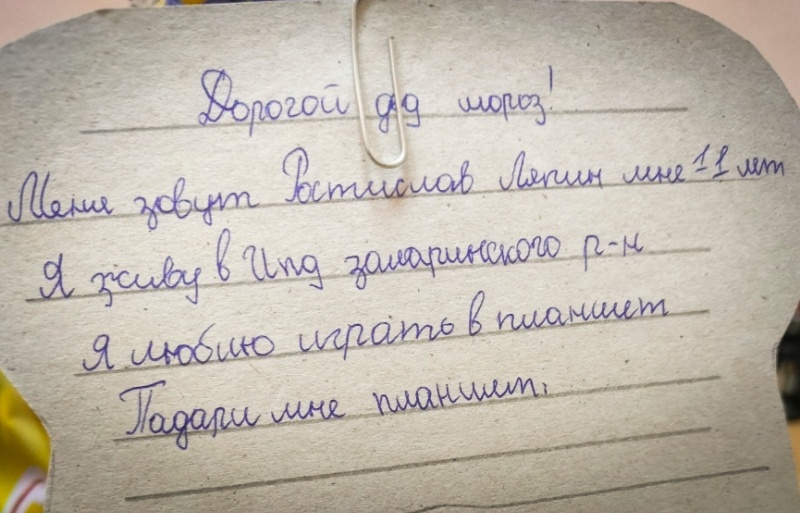 Дорогой дд мороз!
Меня зовут Ростислав Ляпин мне 11 лет
Я живу в замаринского р-н
Я люблю играть в планшет
Падари мне планшет.